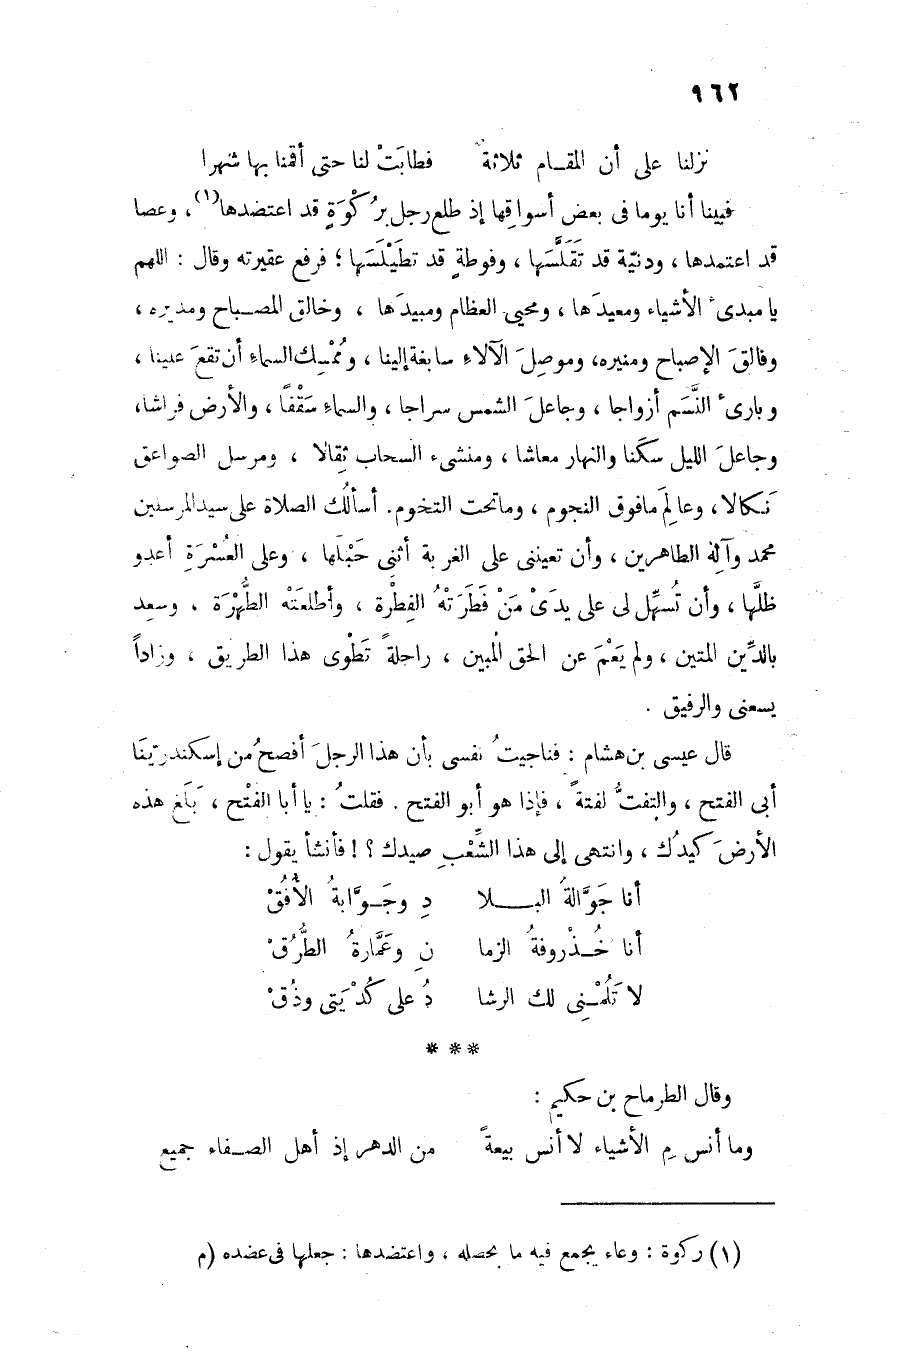 ٩٦٢
نزلنا على أن المقـام ثلاثة فطابَتْ لنا حتى أقمنا بها شهرا
فبينا أنا يوما فى بعض أسواقِها إذ طلع رجل برَكْوَةٍ قد اعتضدها(١)، وعصا
قد اعتمدها، ودنيّة قد تَقَلَّسَها، وفوطةٍ قد تطَيْلَسَها؛ فرفع عقيرته وقال: اللهم
يا مبدىء الأشياء ومعيدَها، ومحيى العظام ومبيدَها، وخالق المصباح ومديره،
وفالقَ الإصباح ومنيره، وموصِلَ الآلاء سابغة إلينا، ومُمْسِك السماء أن تقعَ علينا،
وبارىء النَّسَم أزواجا، وجاعلَ الشمس سراجا، والسماء سَقْفًا، والأرض فراشا،
وجاعلَ الليل سكَنا والنهار معاشا، ومنشىء السحاب ثِقالا، ومرسل الصواعق
نَكالا، وعالِمَ مافوق النجوم، وماتحت التخوم. أسألُك الصلاة على سيد المرسلين
محمد وآلِه الطاهرين، وأن تعيننى على الغربة أثنى حَبْلَها، وعلى العُسْرَةِ أعدو
ظلَّها، وأن تُسهِّل لى على يدَىْ مَنْ فَطَرَتْهُ الفِطْرة، وأطلعَتْه الطُّهْرَة، وسعِد
بالدِّين المتين، ولم يَعْمَ عن الحق المُبين، راحلةً تَطْوى هذا الطريق، وزاداً
يسعنى والرفيق.
قال عيسى بن هشام: فناجيتُ نفسى بأن هذا الرجلَ أفصحُ من إسكندريّنَا
أبى الفتح، والتفتُّ لفتةً، فإذا هو أبو الفتح. فقلتُ: يا أبا الفتْح، بَلَغ هذه
الأرضَ كيدُك، وانتهى إلى هذا الشِّعْبِ صيدك؟! فأنشأ يقول:
أنا جَوَّالةُ البـلا دِ وجَـوَّابةُ الأُفُقْ
أنا خُـذْروفةُ الزما نِ وعَمَّارةُ الطُّرُقْ
لا تَلُمْـنِى لك الرشا دُ على كُدْيَتِى وذُقْ
***
وقال الطرماح بن حكيم:
وما أنس مِ الأشياء لا أنس بيعةً من الدهر إذ أهل الصـفاء جميع
(١) ركوة: وعاء يجمع فيه ما يحصله، واعتضدها: جعلها فى عضده (م